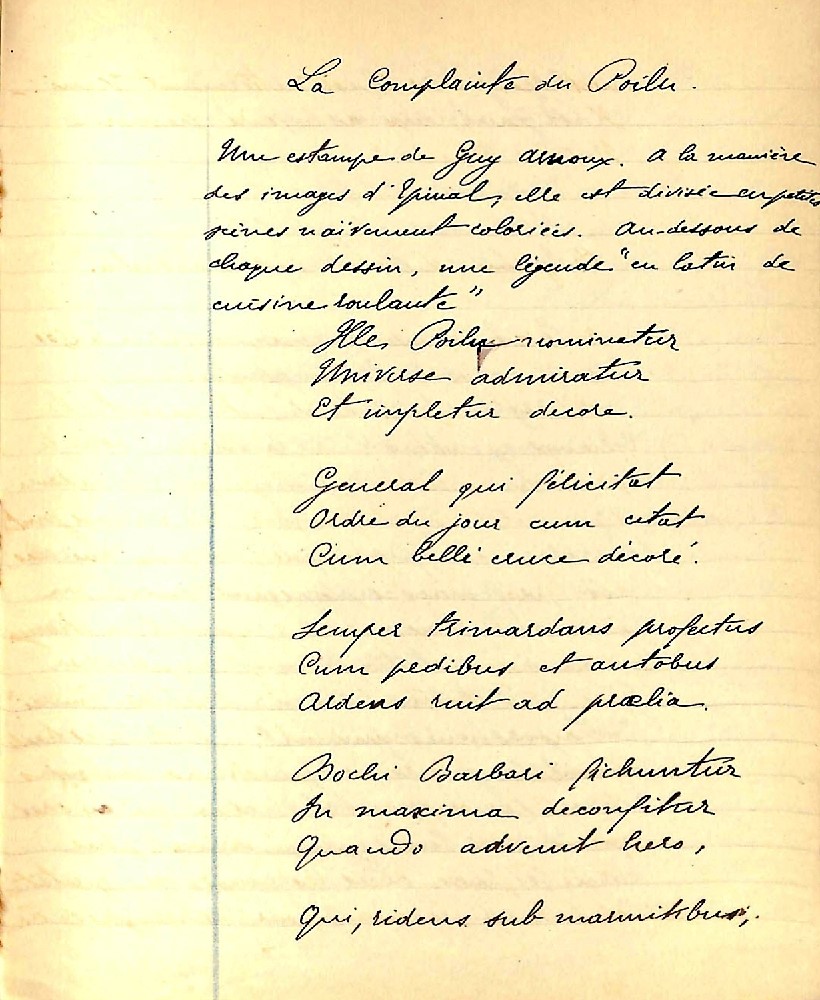 La Complainte du Poilu.
Une estampe de Guy Arnoux. A la manière
des images d'Epinal, elle est divisée en petites
scènes naïvement coloriées. Au-dessous de
chaque dessin, une légende "en latin de
cuisine roulante"
Ille Poilu nominatur
Universe admiratur
Et impletur decore.
General qui félicitat
Ordre du jour cum citat
Cum belli cruce décoré.
Semper trimardans profectus
Cum pedibus et autobus
Ardens ruit ad prœlia.
Bochi Barbari fichuntur
In maxima deconfitur
Quando advenit hero,
Qui, ridens sub marmitibus,